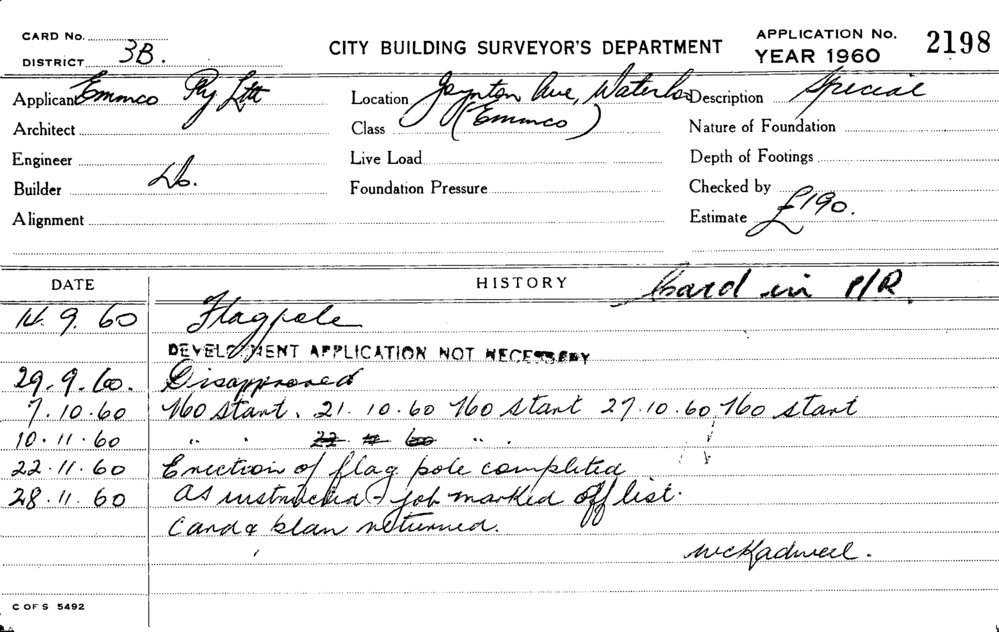 CARD No.
DISTRICT 3B.
CITY BUILDING SURVEYOR'S DEPARTMENT
APPLICATION No. 2198
YEAR 1960
Applicant Emmco Pty Ltd
Location Joynton Ave, Waterloo
Description Special
Architect
Class (Emmco)
Nature of Foundation
Engineer
Live Load
Depth of Footings
Builder Do.
Foundation Pressure
Checked by
Alignment
Estimate £190.
DATE
HISTORY
Card in P/R.
14. 9. 60 Flagpole
DEVELOPMENT APPLICATION NOT NECESSARY
29. 9. 60. Disapproved
7. 10. 60 No start. 21. 10. 60 No start 27. 10. 60 No start
10. 11. 60 " " 22 11 60 " "
22. 11. 60 Erection of flag pole completed
28. 11. 60 As instructed - job marked off list.
Card & plan returned.
C OF S 5492